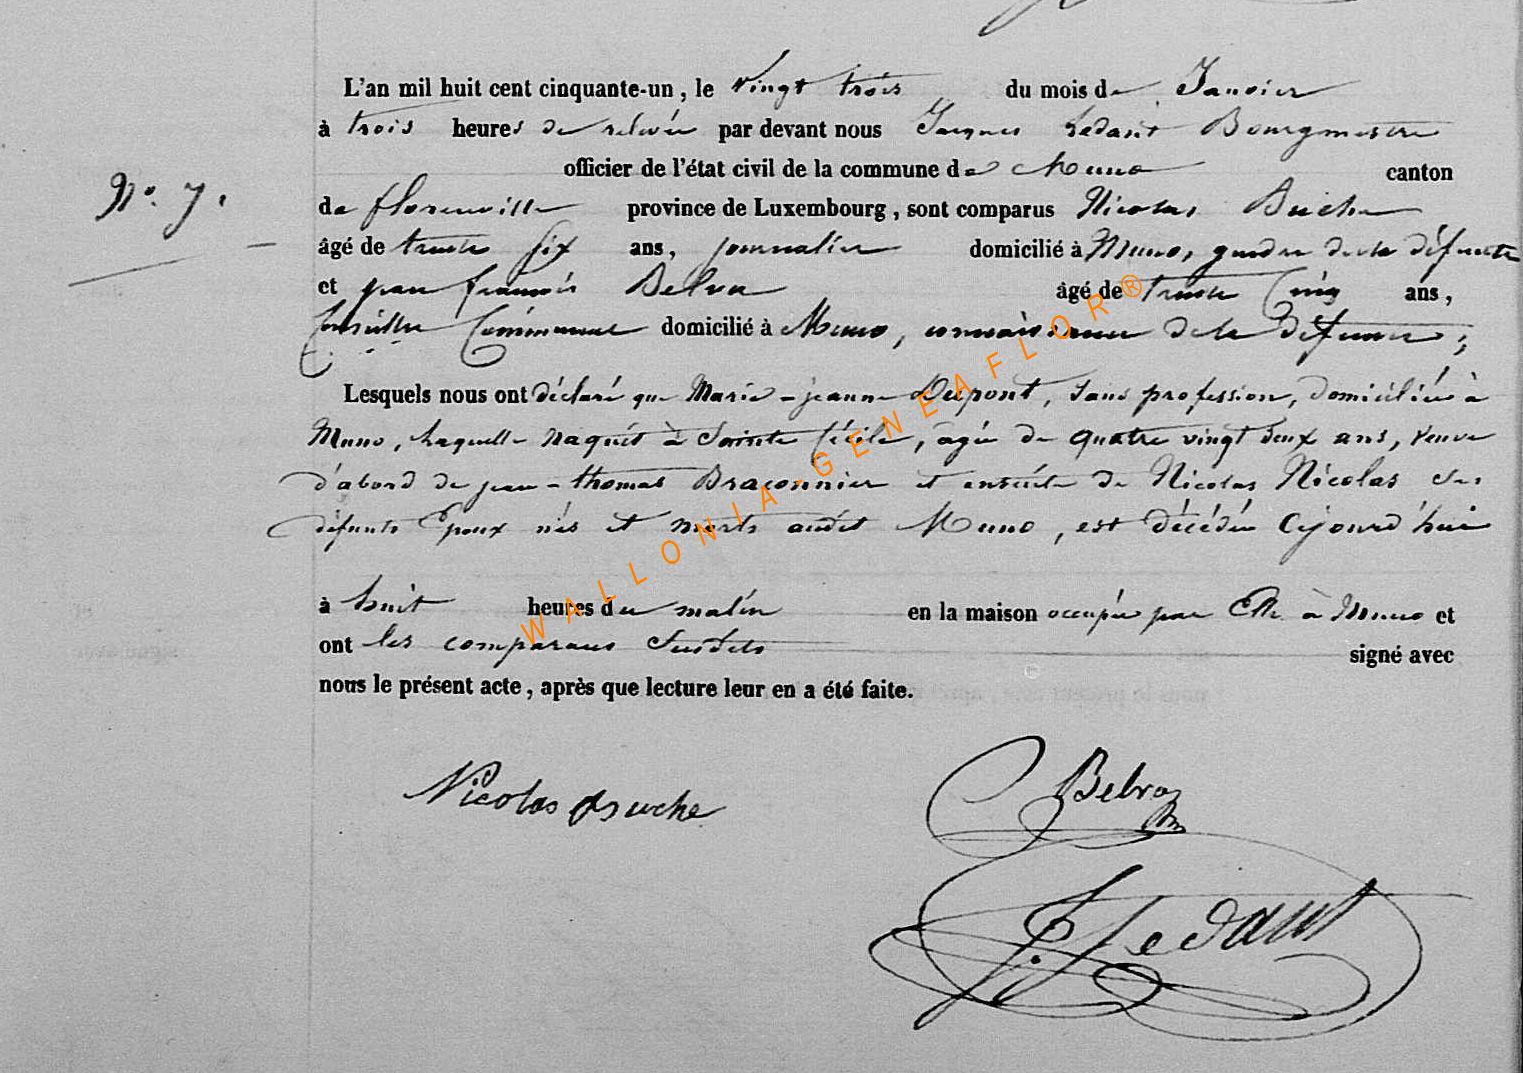 L'an mil huit cent cinquante-un, le vingt trois du mois de Janvier
à trois heures de relevée par devant nous Jacques Ledant Bourgmestre
officier de l'état civil de la commune de Muno canton
N.° 7. de florenville province de Luxembourg, sont comparus Nicolas Buche
âgé de trente six ans, journalier domicilié à Muno, gendre de la défunte
et jean françois Belva âgé de trente Cinq ans,
Conseiller Communal domicilié à Muno, connaissance de la défunte;
Lesquels nous ont déclaré que Marie-jeanne Dupont, sans profession, domiciliée à
Muno, laquelle naquit à Sainte Cécile, âgée de quatre vingt deux ans, veuve
d'abord de jean-thomas Braconnier et ensuite de Nicolas Nicolas ses
défunts Epoux nés et morts audit Muno, est décédée Cejourd'hui
à huit heures du matin en la maison occupée par Elle à Muno et
ont les comparans susdits signé avec
nous le présent acte, après que lecture leur en a été faite.
Nicolas Buche Belva
J. Ledant
WALLONIA-GENEAFLOR®